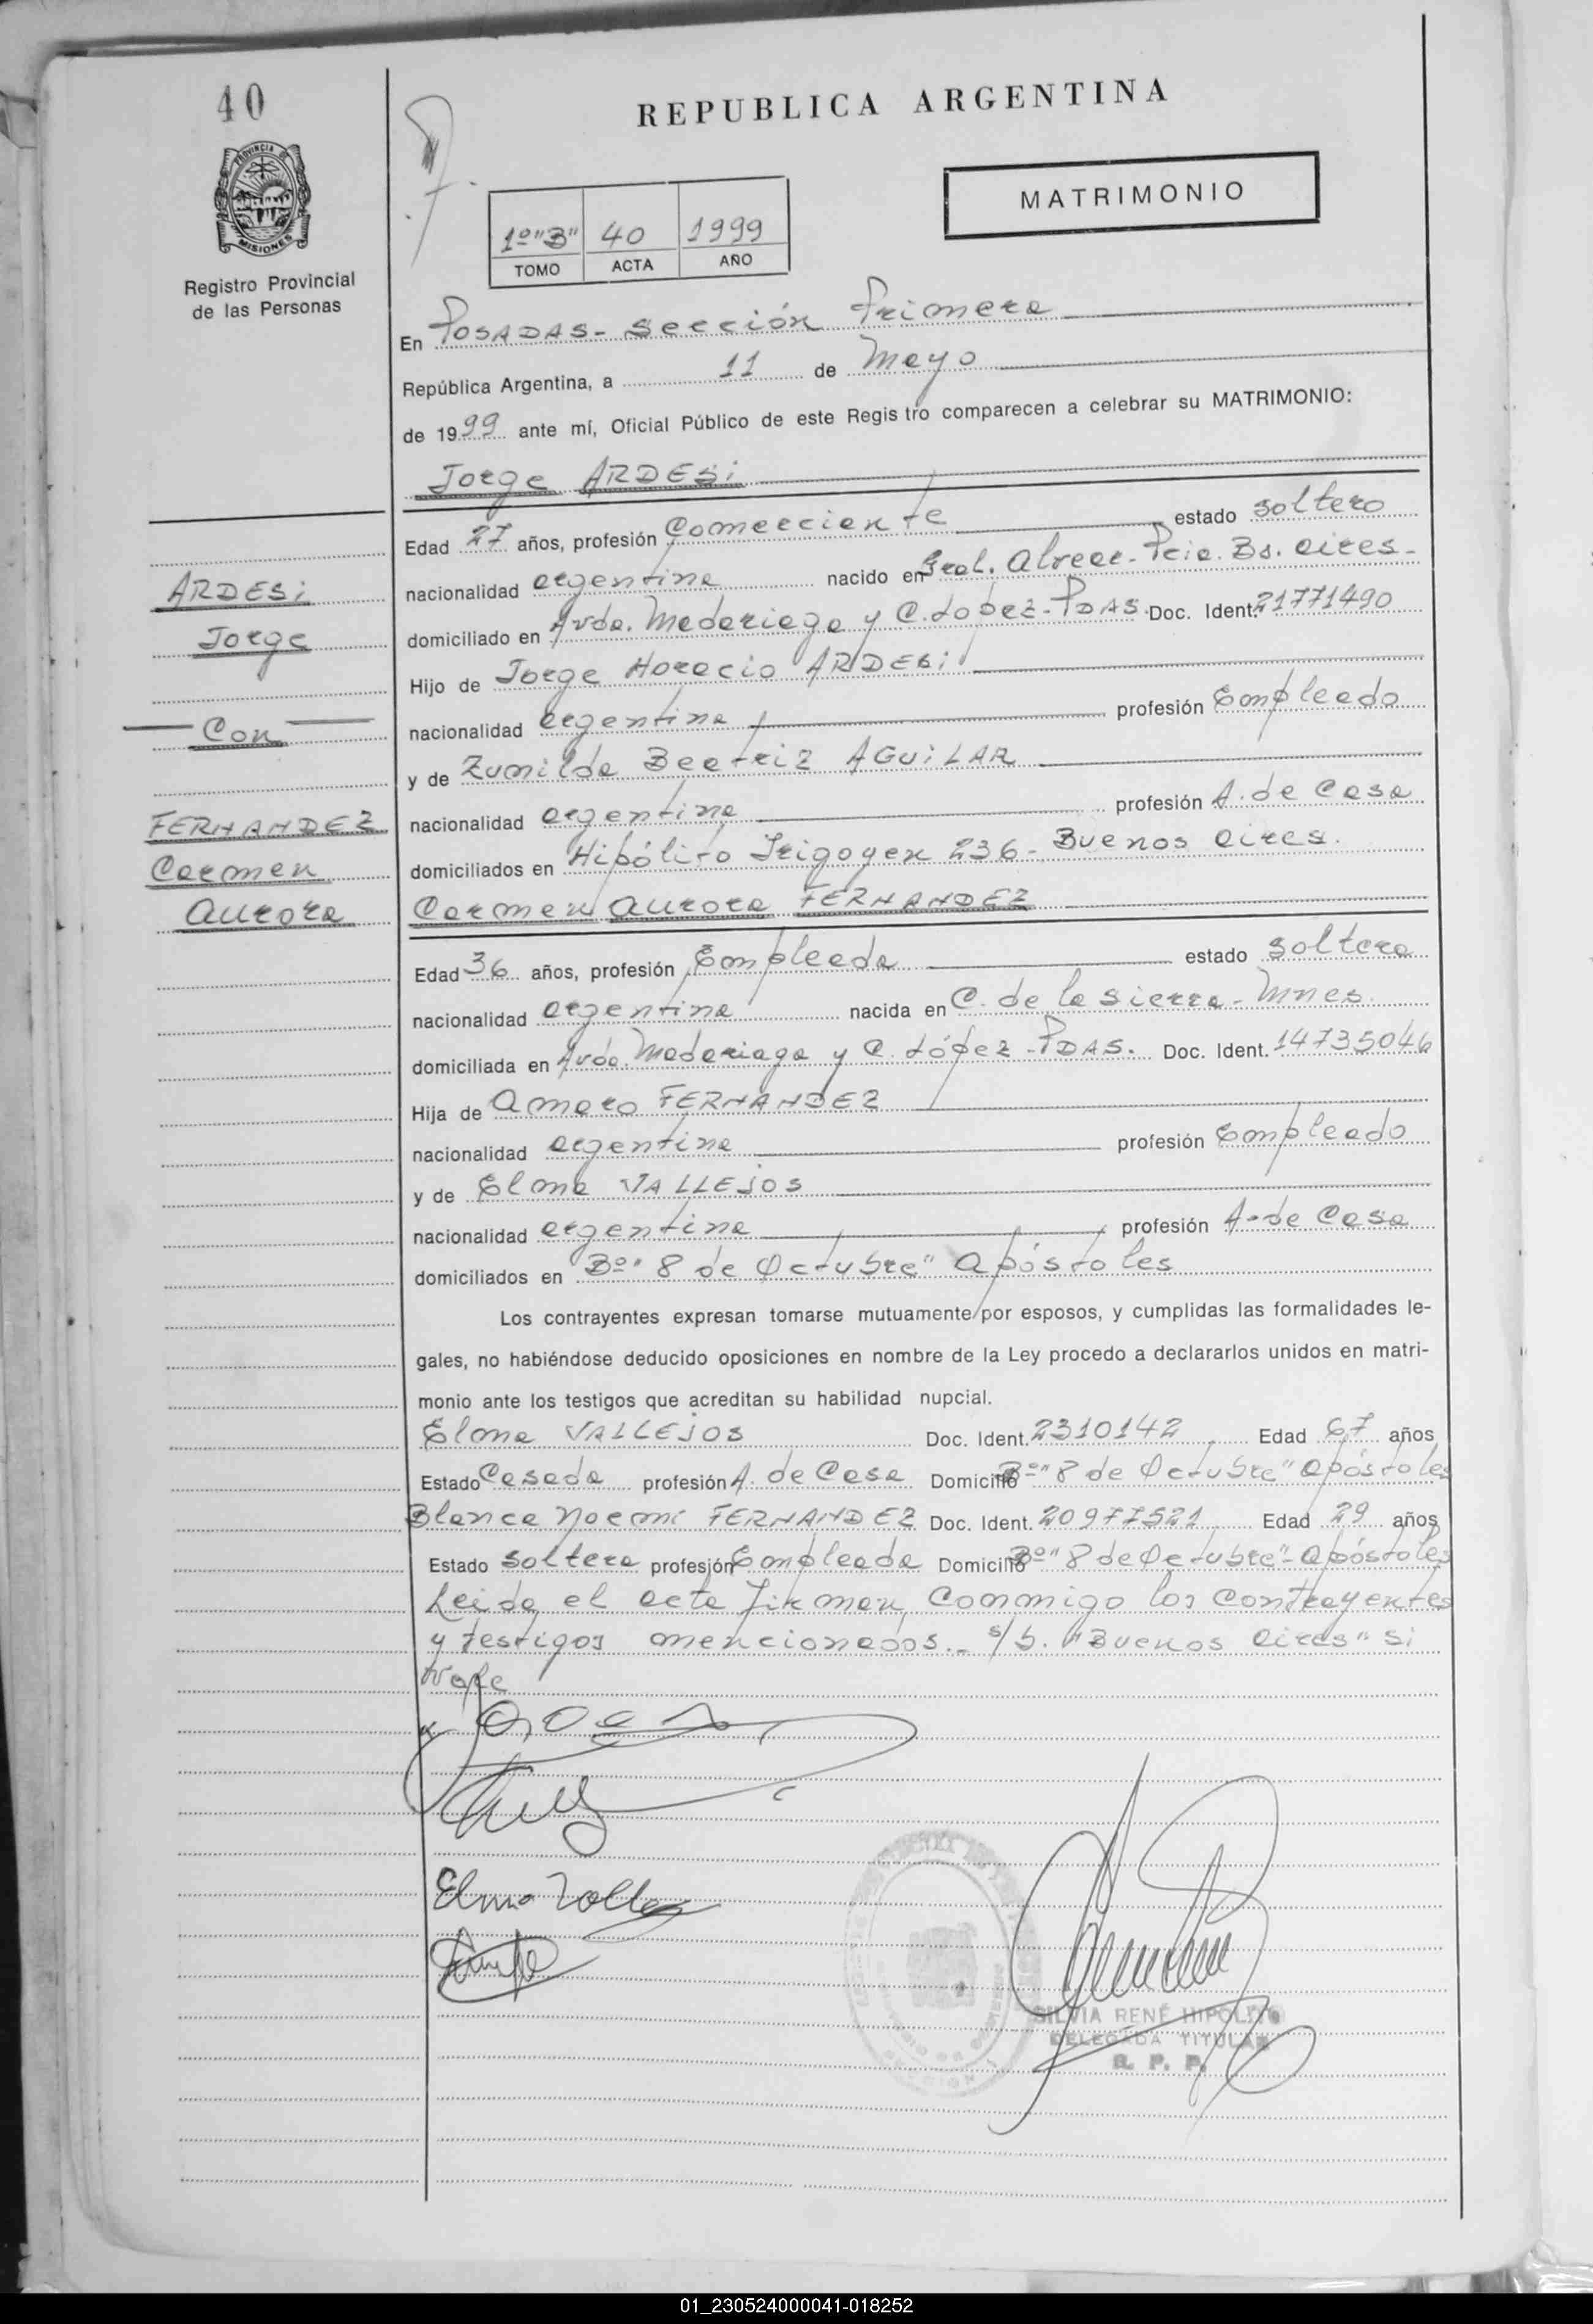 40
REPUBLICA ARGENTINA
MATRIMONIO
PROVINCIA DE
MISIONES
Registro Provincial
de las Personas
1º "B" 40 1999
TOMO ACTA AÑO
En POSADAS - Sección Primera
República Argentina, a 11 de Mayo
de 1999 ante mí, Oficial Público de este Regis tro comparecen a celebrar su MATRIMONIO:
Jorge ARDESi
Edad 27 años, profesión Comerciante estado soltero
nacionalidad argentina nacido en Gral. Alvear - Pcia. Bs. aires -
domiciliado en Avda. Madariaga y C. López - PDAS. Doc. Ident. 21771490
Hijo de Jorge Horacio ARDESi
nacionalidad argentina profesión Empleado
y de Zunilda Beatriz AGUiLAR
nacionalidad argentina profesión A. de Casa
domiciliados en Hipólito Irigoyen 236 - Buenos aires.
Carmen Aurora FERNANDEZ
ARDESi
Jorge
Con
FERNANDEZ
Carmen
Aurora
Edad 36 años, profesión Empleada estado soltera
nacionalidad argentina nacida en C. de la Sierra - Mnes.
domiciliada en Avda. Madariaga y C. López - PDAS. Doc. Ident. 14735046
Hija de Amaro FERNANDEZ
nacionalidad argentina profesión Empleado
y de Elma VALLEJOS
nacionalidad argentina profesión A. de Casa
domiciliados en Bº "8 de Octubre" Apóstoles
Los contrayentes expresan tomarse mutuamente por esposos, y cumplidas las formalidades le-
gales, no habiéndose deducido oposiciones en nombre de la Ley procedo a declararlos unidos en matri-
monio ante los testigos que acreditan su habilidad nupcial.
Elma VALLEJOS Doc. Ident. 2310142 Edad 67 años
Estado Casada profesión A. de Casa Domicilio Bº "8 de Octubre" Apóstoles
Blanca Noemí FERNANDEZ Doc. Ident. 20977521 Edad 29 años
Estado soltera profesión Empleada Domicilio Bº "8 de Octubre" - Apóstoles
Leída el acta firman conmigo los contrayentes
y testigos mencionados. - s/b. "Buenos aires" si
vale
Elma Valle
SILVIA RENÉ HIPOLITO
DELEGADA TITULAR
R. P. P.
01_230524000041-018252